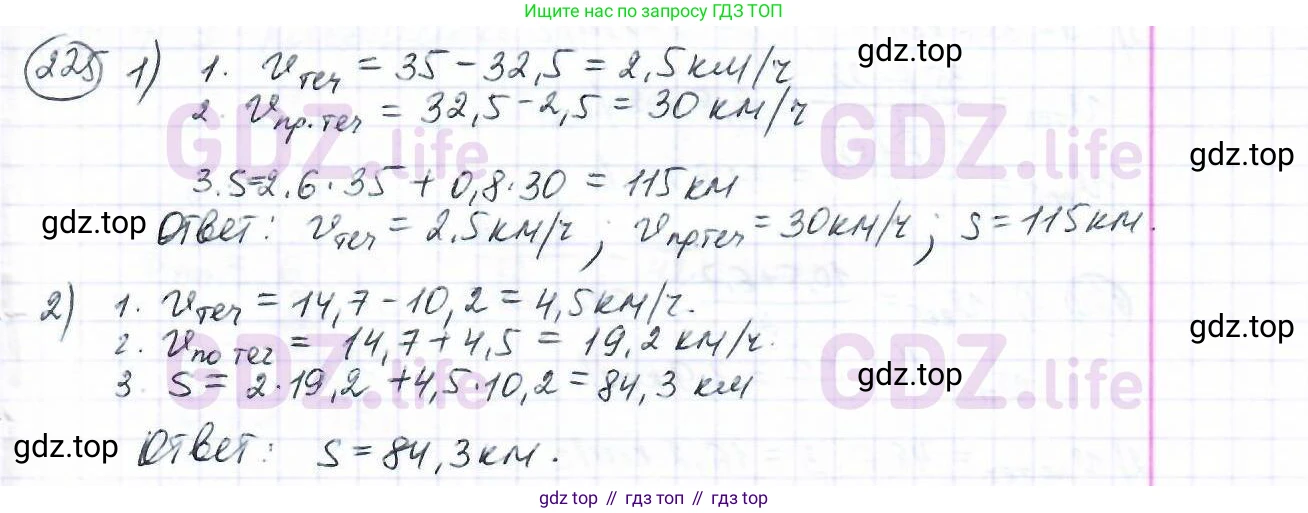 Ищите нас по запросу ГДЗ ТОП
225 1) 1. Vтеч = 35 - 32,5 = 2,5 км/ч gdz.top
2. Vпр.теч = 32,5 - 2,5 = 30 км/ч
GDZ.life GDZ.life
gdz.top
3. S = 2.6 · 35 + 0,8 · 30 = 115 км
gdz.top Ответ: Vтеч = 2,5 км/ч; Vпр.теч = 30 км/ч; S = 115 км.
2) 1. Vтеч = 14,7 - 10,2 = 4,5 км/ч.
gdz.top
2. Vпо теч = 14,7 + 4,5 = 19,2 км/ч.
GDZ.life GDZ.life
3. S = 2 · 19,2 + 4,5 · 10,2 = 84,3 км gdz.top
gdz.top Ответ: S = 84,3 км.
gdz top // гдз топ // gdz top